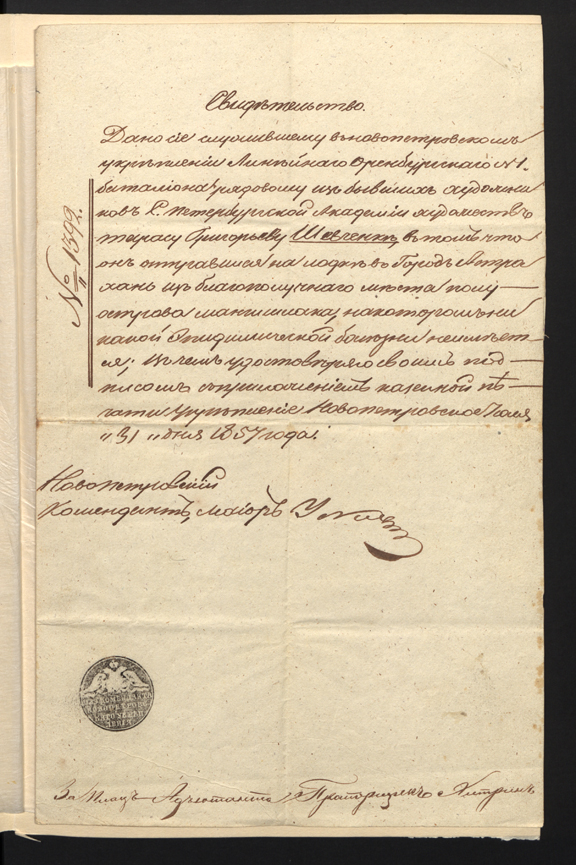 Свидѣтельство.
Дано сіе служившему въ новопетровскомъ
укрѣпленіи Линѣйнаго Оренбургскаго № 1.
баталіона рядовому изъ бывшихъ художни
ковъ С. Петербургской Академіи художествъ
тарасу Григорьеву Шевченкѣ въ томъ что
онъ отправился на лодкѣ въ Городъ Астра
хань изъ благополучнаго мѣста полу
острова мангишлака, на которомъ ни
какой Эпидемической болѣзни неимѣет
ся; въ чемъ удостовѣряю своимъ под
писомъ съ приложеніемъ казенной пѣ
чати Укрѣпленіе Новопетровское Іюля
„31 „ дня 1857 года.
№ 1392.
Новопетровскій
Комендантъ, маіоръ Усковъ
За Плацъ Адъютанта Прапорщикъ